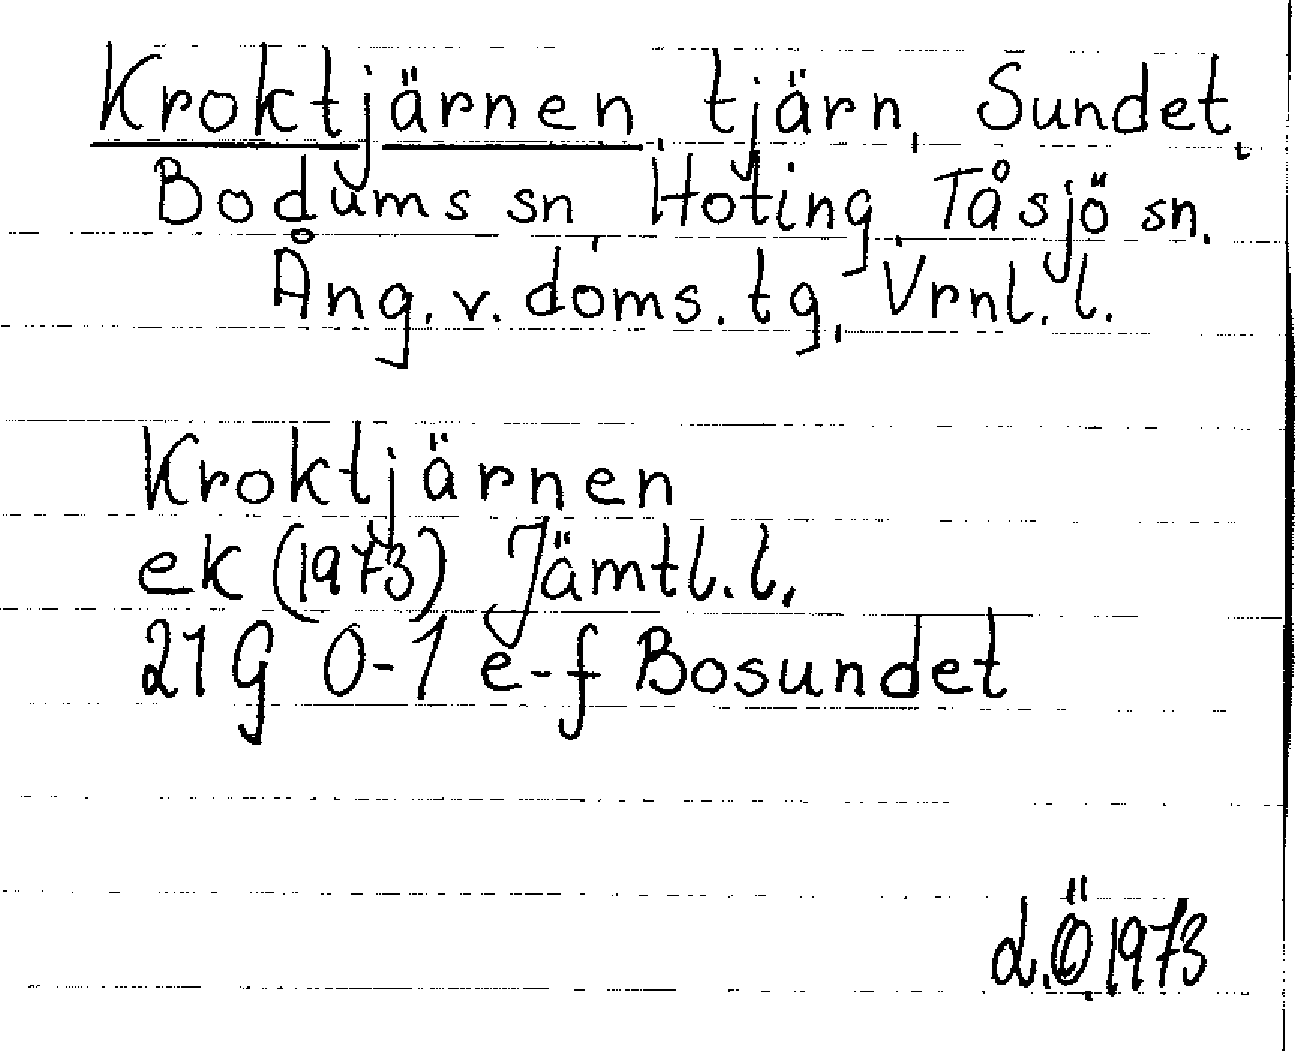 Kroktjärnen, tjärn, Sundet,
Bodums sn, Hoting, Tåsjö sn.
Ång. v. doms. tg, Vrnl. l.
Kroktjärnen
ek (1973) Jämtl. l.
21G 0-1 e-f Bosundet
L.Ö. 1973